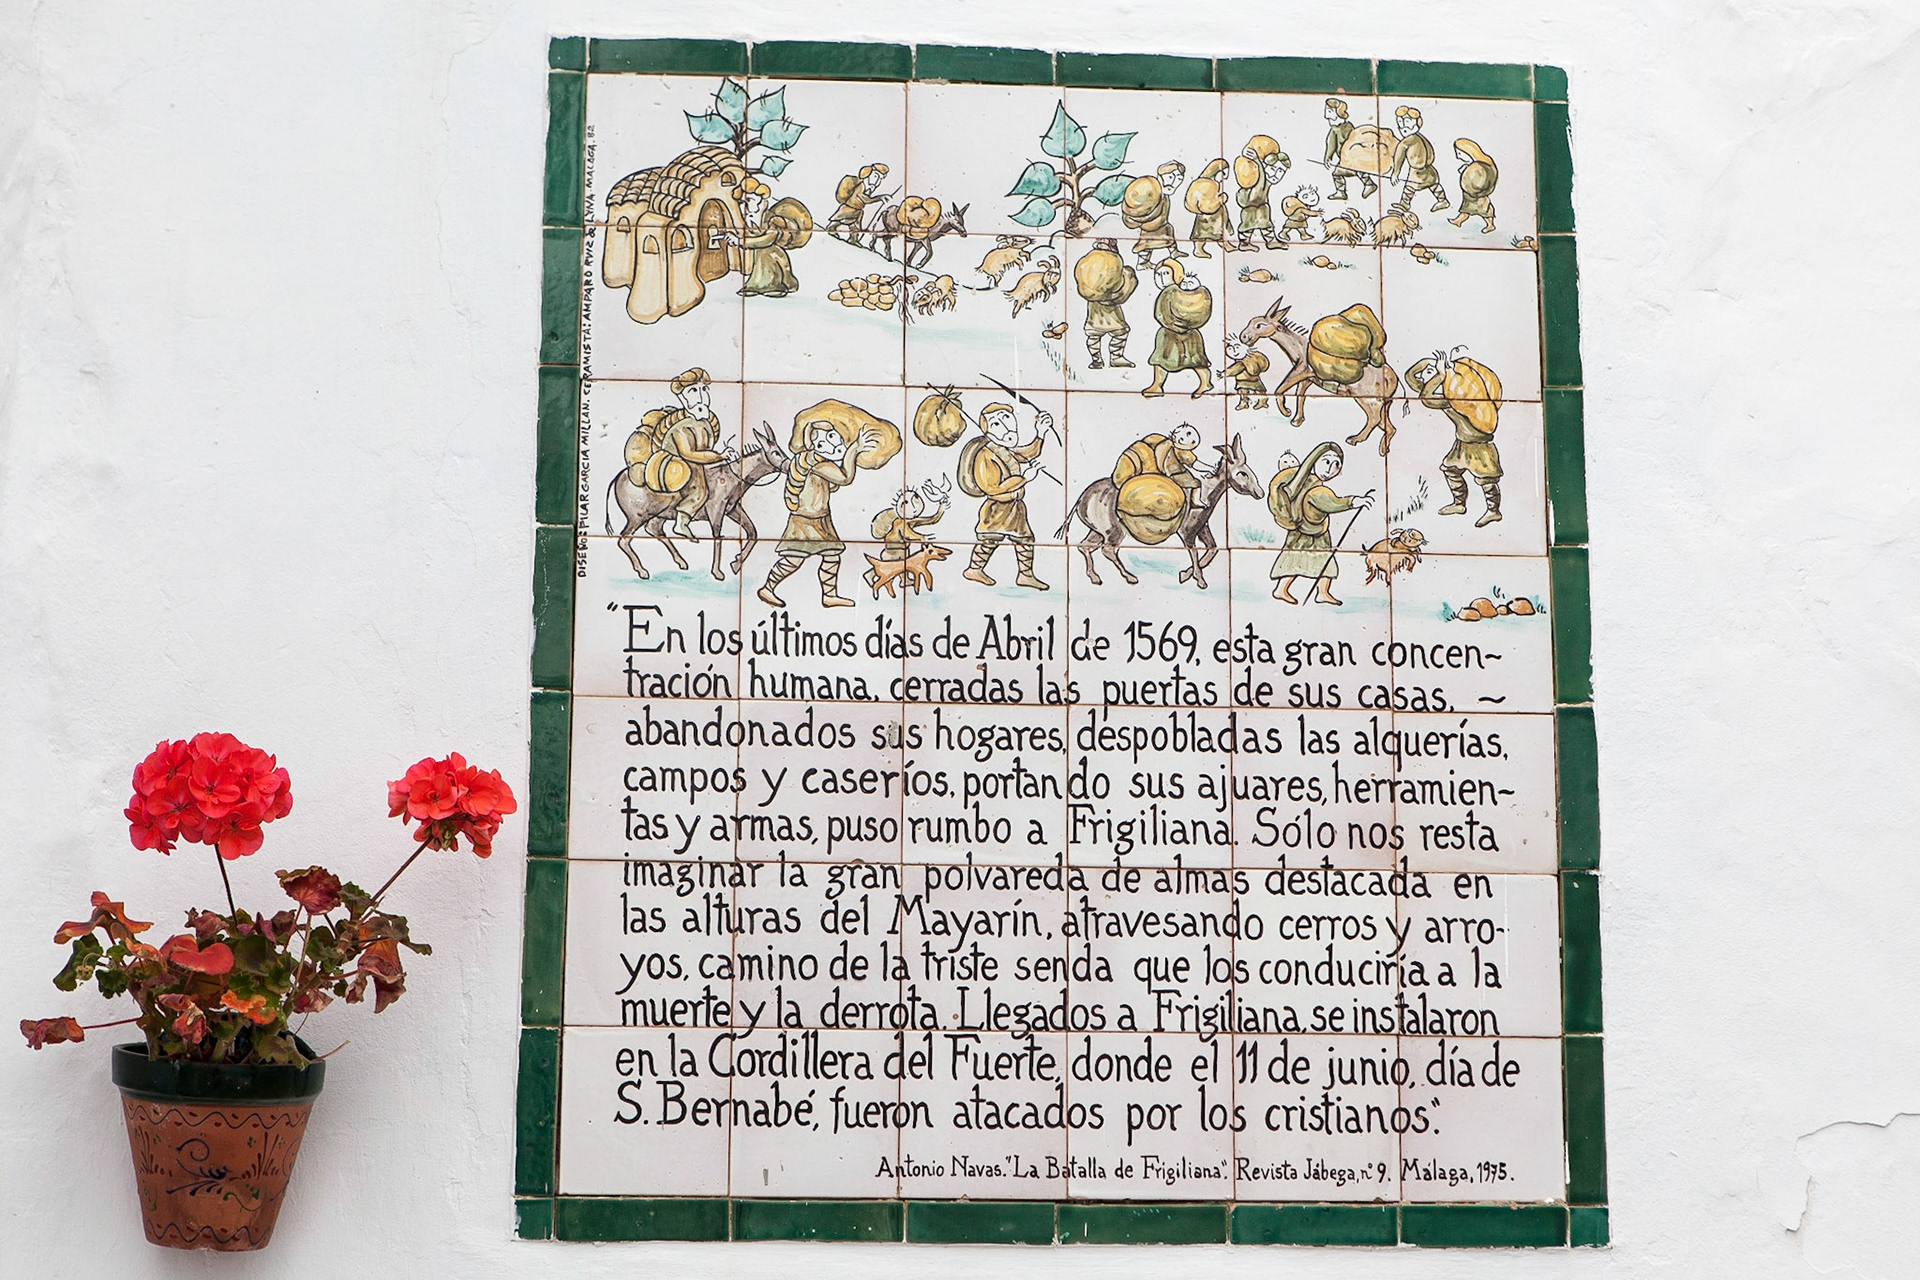 DISEÑO: PILAR GARCIA MILLAN. CERAMISTA: AMPARO RUIZ DE LUNA. MALAGA. 82
"En los últimos días de Abril de 1569, esta gran concen~
tración humana, cerradas las puertas de sus casas, ~
abandonados sus hogares, despobladas las alquerías,
campos y caseríos, portando sus ajuares, herramien~
tas y armas, puso rumbo a Frigiliana. Sólo nos resta
imaginar la gran polvareda de almas destacada en
las alturas del Mayarín, atravesando cerros y arro-
yos, camino de la triste senda que los conduciría a la
muerte y la derrota. Llegados a Frigiliana, se instalaron
en la Cordillera del Fuerte, donde el 11 de junio, día de
S. Bernabé, fueron atacados por los cristianos".
Antonio Navas. "La Batalla de Frigiliana". Revista Jábega, nº 9. Málaga, 1975.